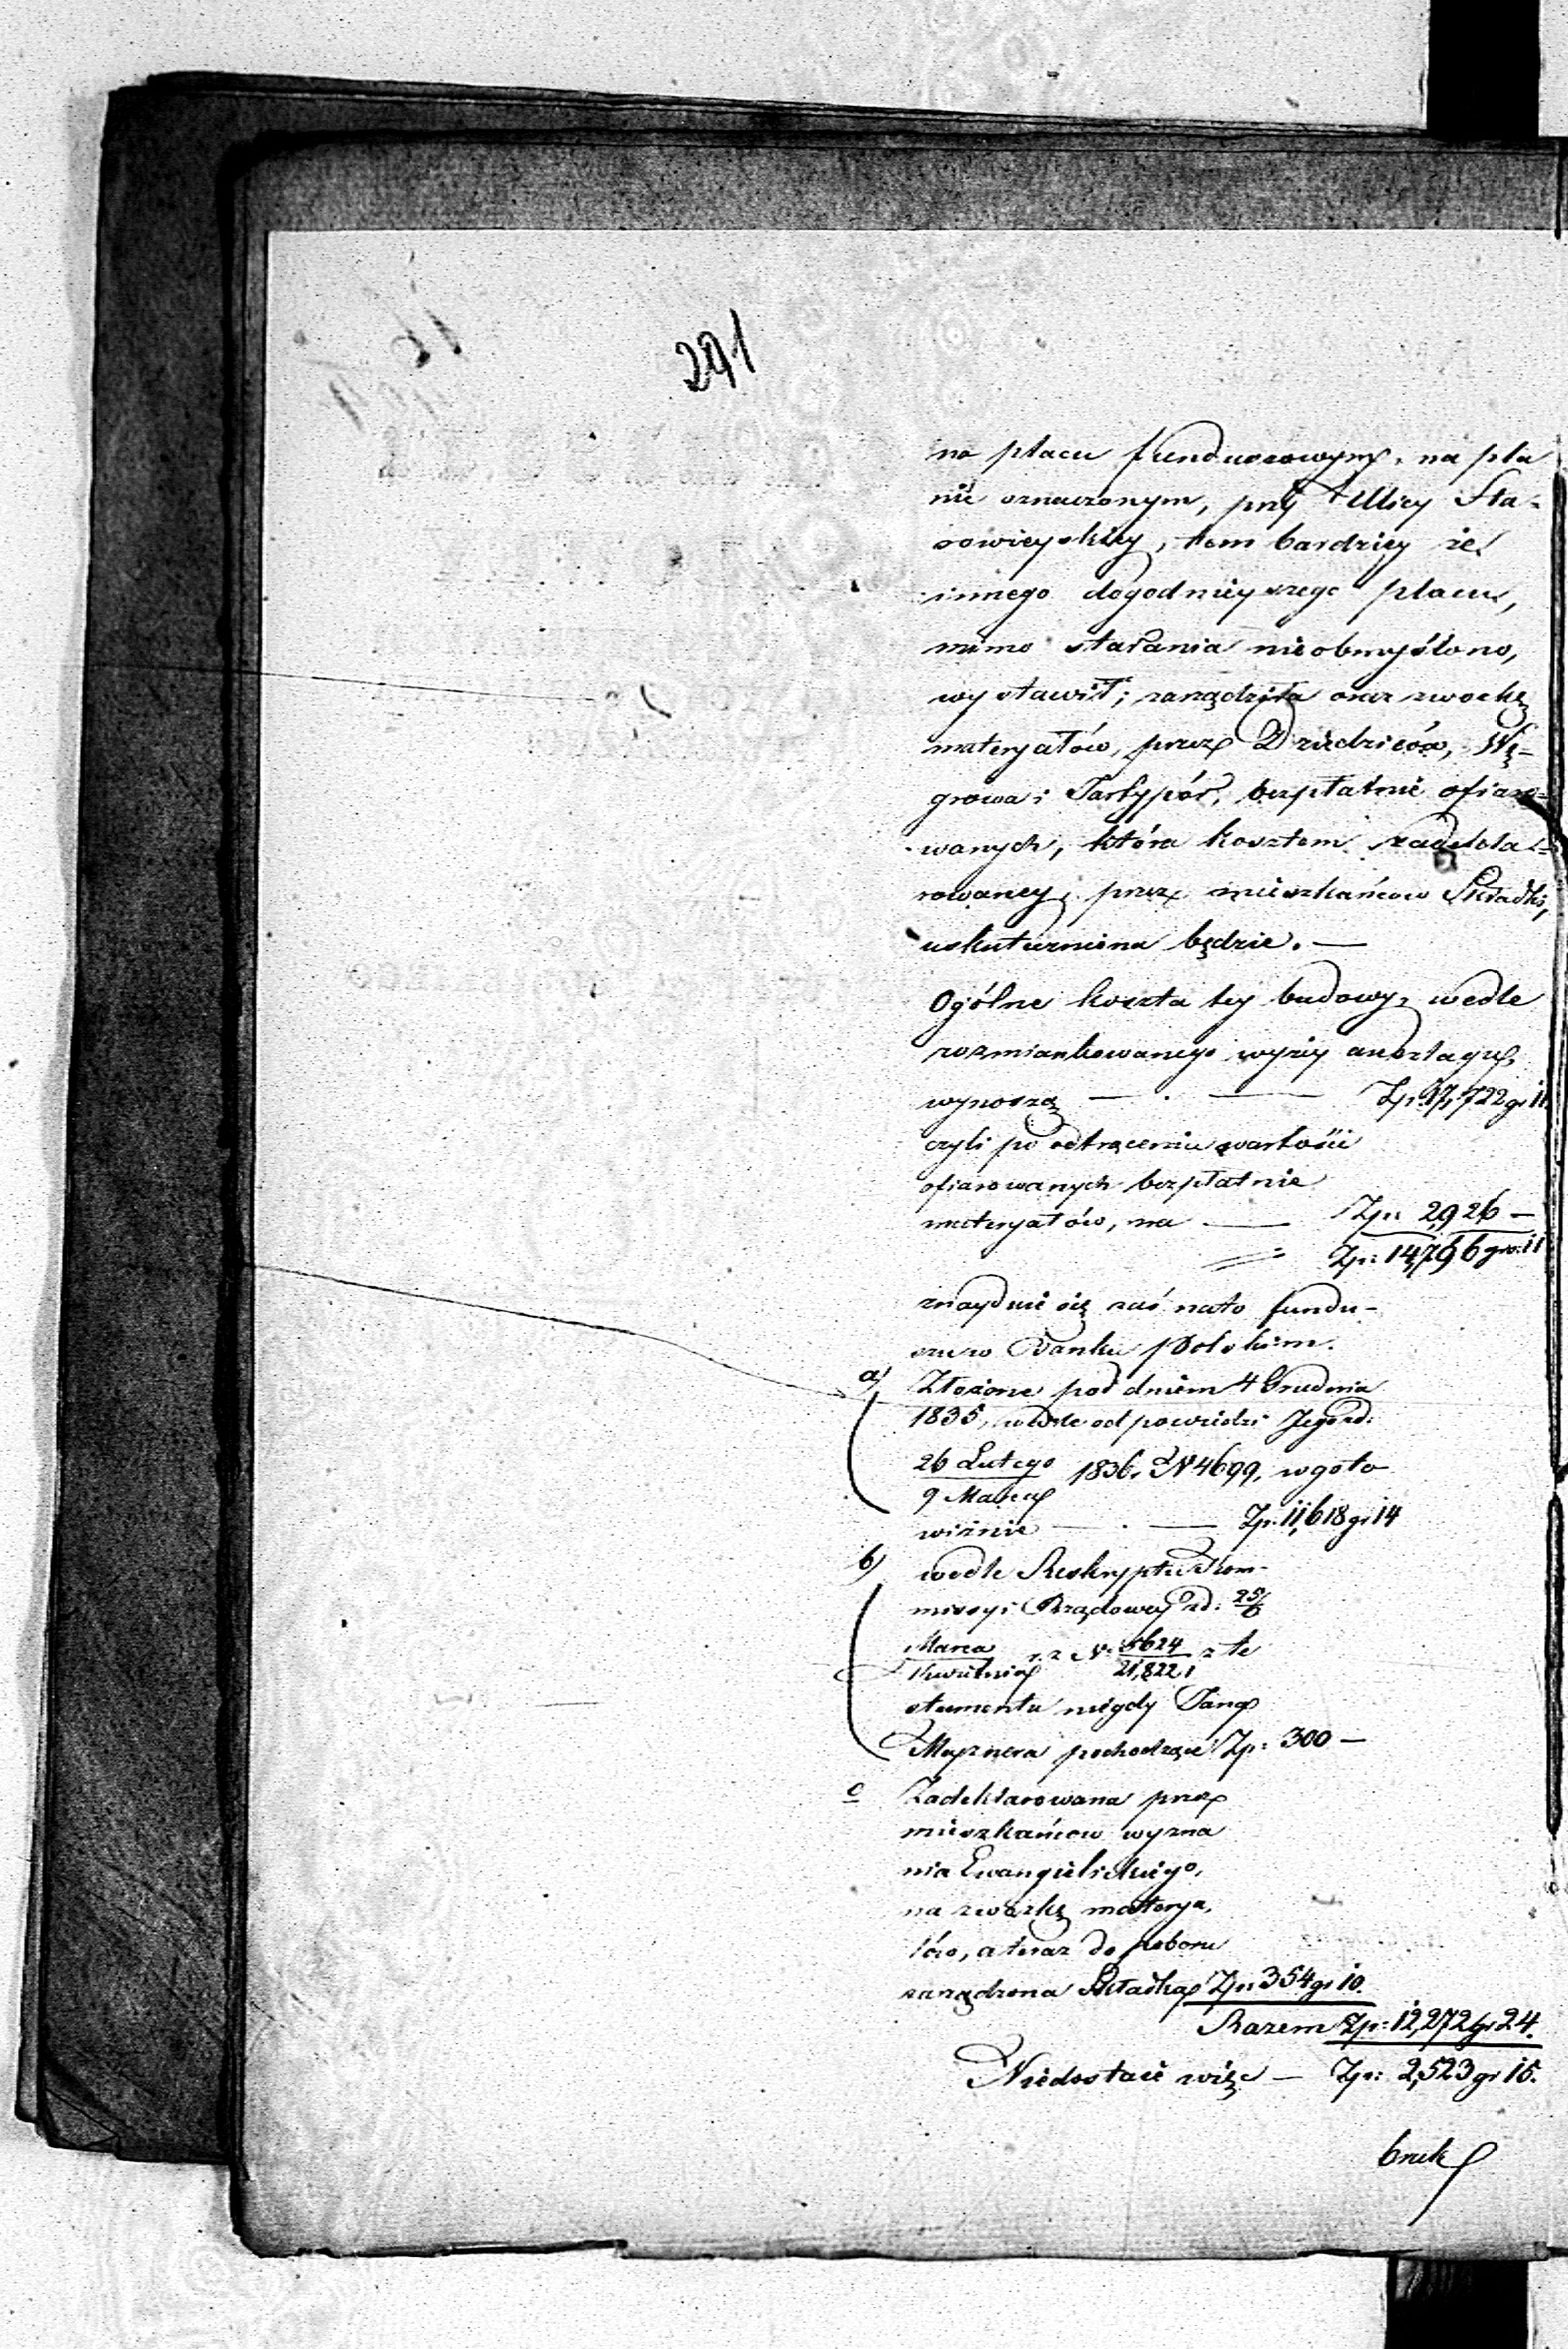 291
na placu funduszowym, na pla
nie oznaczonym, przy Ulicy Sta-
rowieyskiey, tem bardziey że
innego dogodnieyszego placu,
mimo starania nieobmyślono,
wystawił; zarządziła oraz zwózkę
materyałów, przez Dziedziców, Wę-
growa i Jartypór, bezpłatnie ofiaro-
wanych, która kosztem zadekla-
rowaney przez mieszkańcow Składki,
uskuteczniona będzie. —
Ogólne koszta tey budowy, wedle
rozmiankowanego wyżey anszlagu,
wynoszą — . — Zp: 17,722 gr 11
czyli po odtrąceniu wartości
ofiarowanych bezpłatnie
materyałów, na — Zp: 2,926 —
= Zp: 14,796 gr: 11
znayduie się zaś nato fundu-
szu w Banku Polskim.
a) Złożone pod dniem 4 Grudnia
1835, wedle odpowiedzi Jego zd:
26 Lutego
9 Marca 1836. N 4699, w goto
wiźnie — . — Zp: 11,618 gr 14
b) wedle Reskryptu Kom-
missyi Rządowey zd: 25/6
Marca
Kwietnia r. z. N: 5624
21,822 z te
stamentu niegdy Pana
Mayznera pochodzące Zp: 300 —
c Zadeklarowana przez
mieszkańcow wyzna
nia Ewangielickiego,
na zwózkę materya,
łów, a teraz do poboru
zarządzona Składka Zp: 354 gr 10.
Razem Zp: 12,272 gr 24.
Niedostaie więc — Zp: 2,523 gr 15.
brak